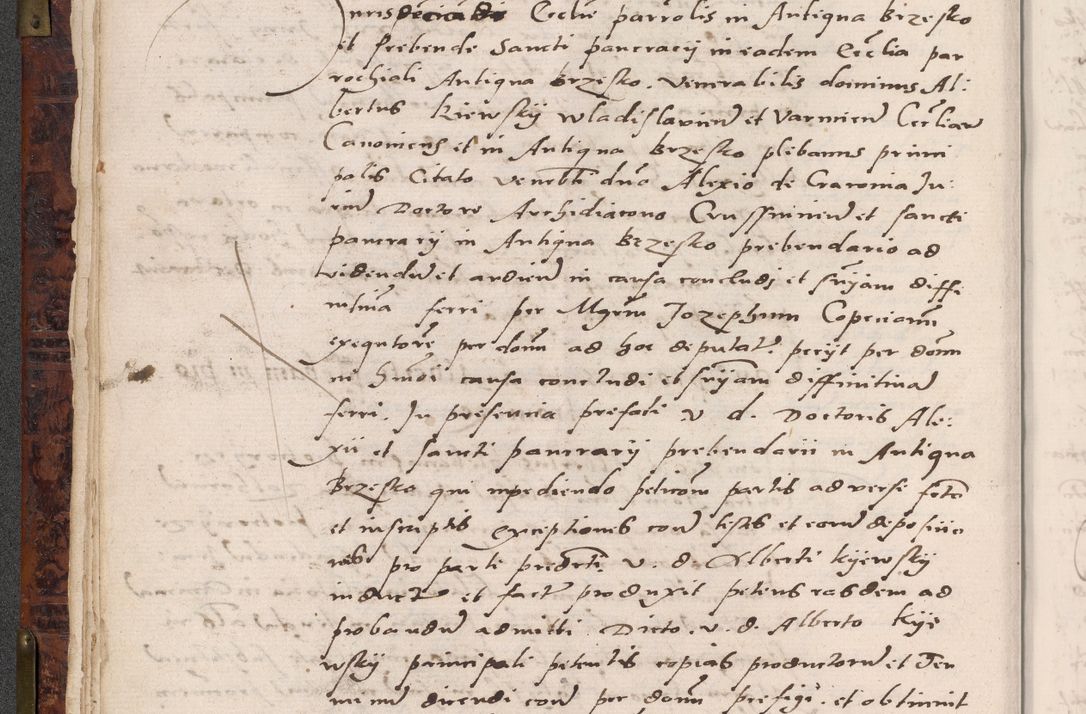 Jurisdicendi Ecclie parrolis in Antiqua Brzesko
et prebende Sancti pancracij in eadem Ecclia par
rochiali Antiqua Brzesko. Venerabilis dominus Al:
bertus Kiewskij Wladislavien et Varmien Eccliar
Canonicus et in Antiqua Brzesko plebanus princi
palis Citato venerbli duo Alexio de Cracovia Ju:
riu Doctore Archidiacono Crussvicien et sancti
pancracij in Antiqua Brzesko prebendario ad
videndu et audien in causa concludi et sniam diffi
nitiva ferri per Mgrm Jozephum Copeciann
exequtore per donm ad hoc deputat. peciit per donm
in hmoi causa concludi et sniam diffinitiva
ferri. In presencia prefati v. d. Doctoris Ale:
xii et sancti pancracij prebendarii in Antiqua
Brzesko qui inpediendo peticom partis adverse
et inscriptis exceptiones con testes et eoru deposicio
nes pro parte predcti v. d. Alberti Kijewskij
induct et fact produxit petens easdem ad
probandu admitti. Dicto. v. d. Alberto Kije
wskij principali petentis copias productoru et Ter
minu dicendi con per donm prefigi. et obtinuit